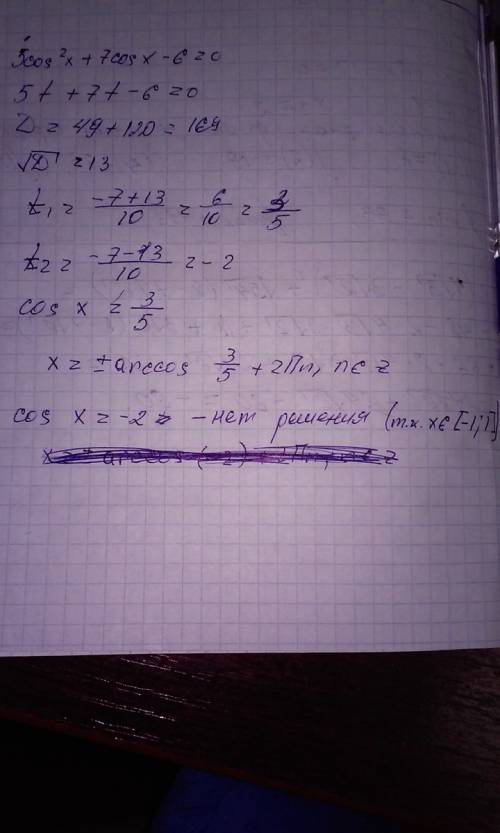 5cos²x + 7cosx - 6 = 0
5t + 7t - 6 = 0
D = 49 + 120 = 169
√D = 13
t₁ = (-7+13)/10 = 6/10 = 3/5
t₂ = (-7-13)/10 = -2
cos x = 3/5
x = ± arccos 3/5 + 2Пn, n є z
cos x = -2 - нет решения (т.к. x є [-1; 1])